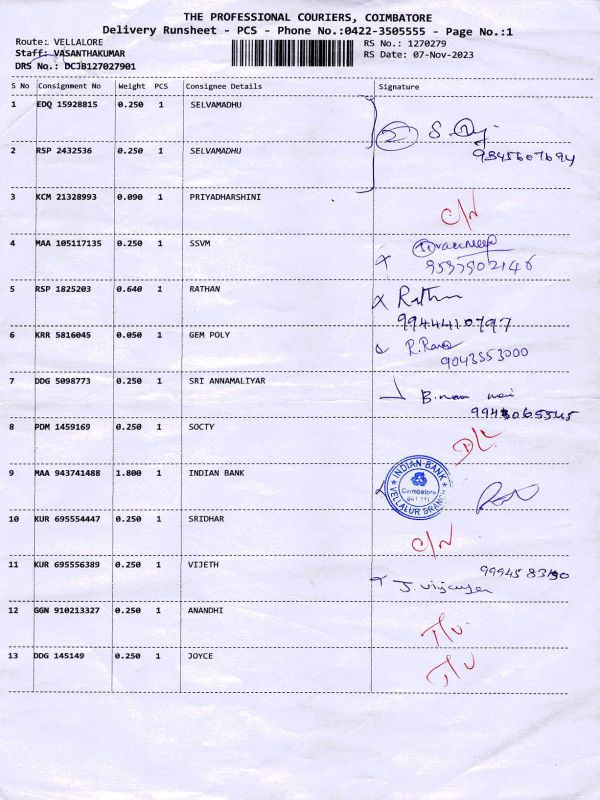 THE PROFESSIONAL COURIERS, COIMBATORE
Delivery Runsheet - PCS - Phone No.:0422-3505555 - Page No.:1
Route: VELLALORE
RS No.: 1270279
Staff: VASANTHAKUMAR
RS Date: 07-Nov-2023
DRS No.: DCJB127027901
S No Consignment No Weight PCS Consignee Details Signature
1 EDQ 15928815 0.250 1 SELVAMADHU
2 RSP 2432536 0.250 1 SELVAMADHU
9345607694
3 KCM 21328993 0.090 1 PRIYADHARSHINI C/N
4 MAA 105117135 0.250 1 SSVM
9597502146
5 RSP 1825203 0.640 1 RATHAN
9944410797
6 KRR 5816045 0.050 1 GEM POLY
9043553000
7 DDG 5098773 0.250 1 SRI ANNAMALIYAR
8 PDM 1459169 0.250 1 SOCTY D/L
9 MAA 943741488 1.800 1 INDIAN BANK
INDIAN BANK
Coimbatore
641 111
VELLALUR BRANCH
10 KUR 695554447 0.250 1 SRIDHAR C/N
11 KUR 695556389 0.250 1 VIJETH
12 GGN 910213327 0.250 1 ANANDHI
13 DDG 145149 0.250 1 JOYCE